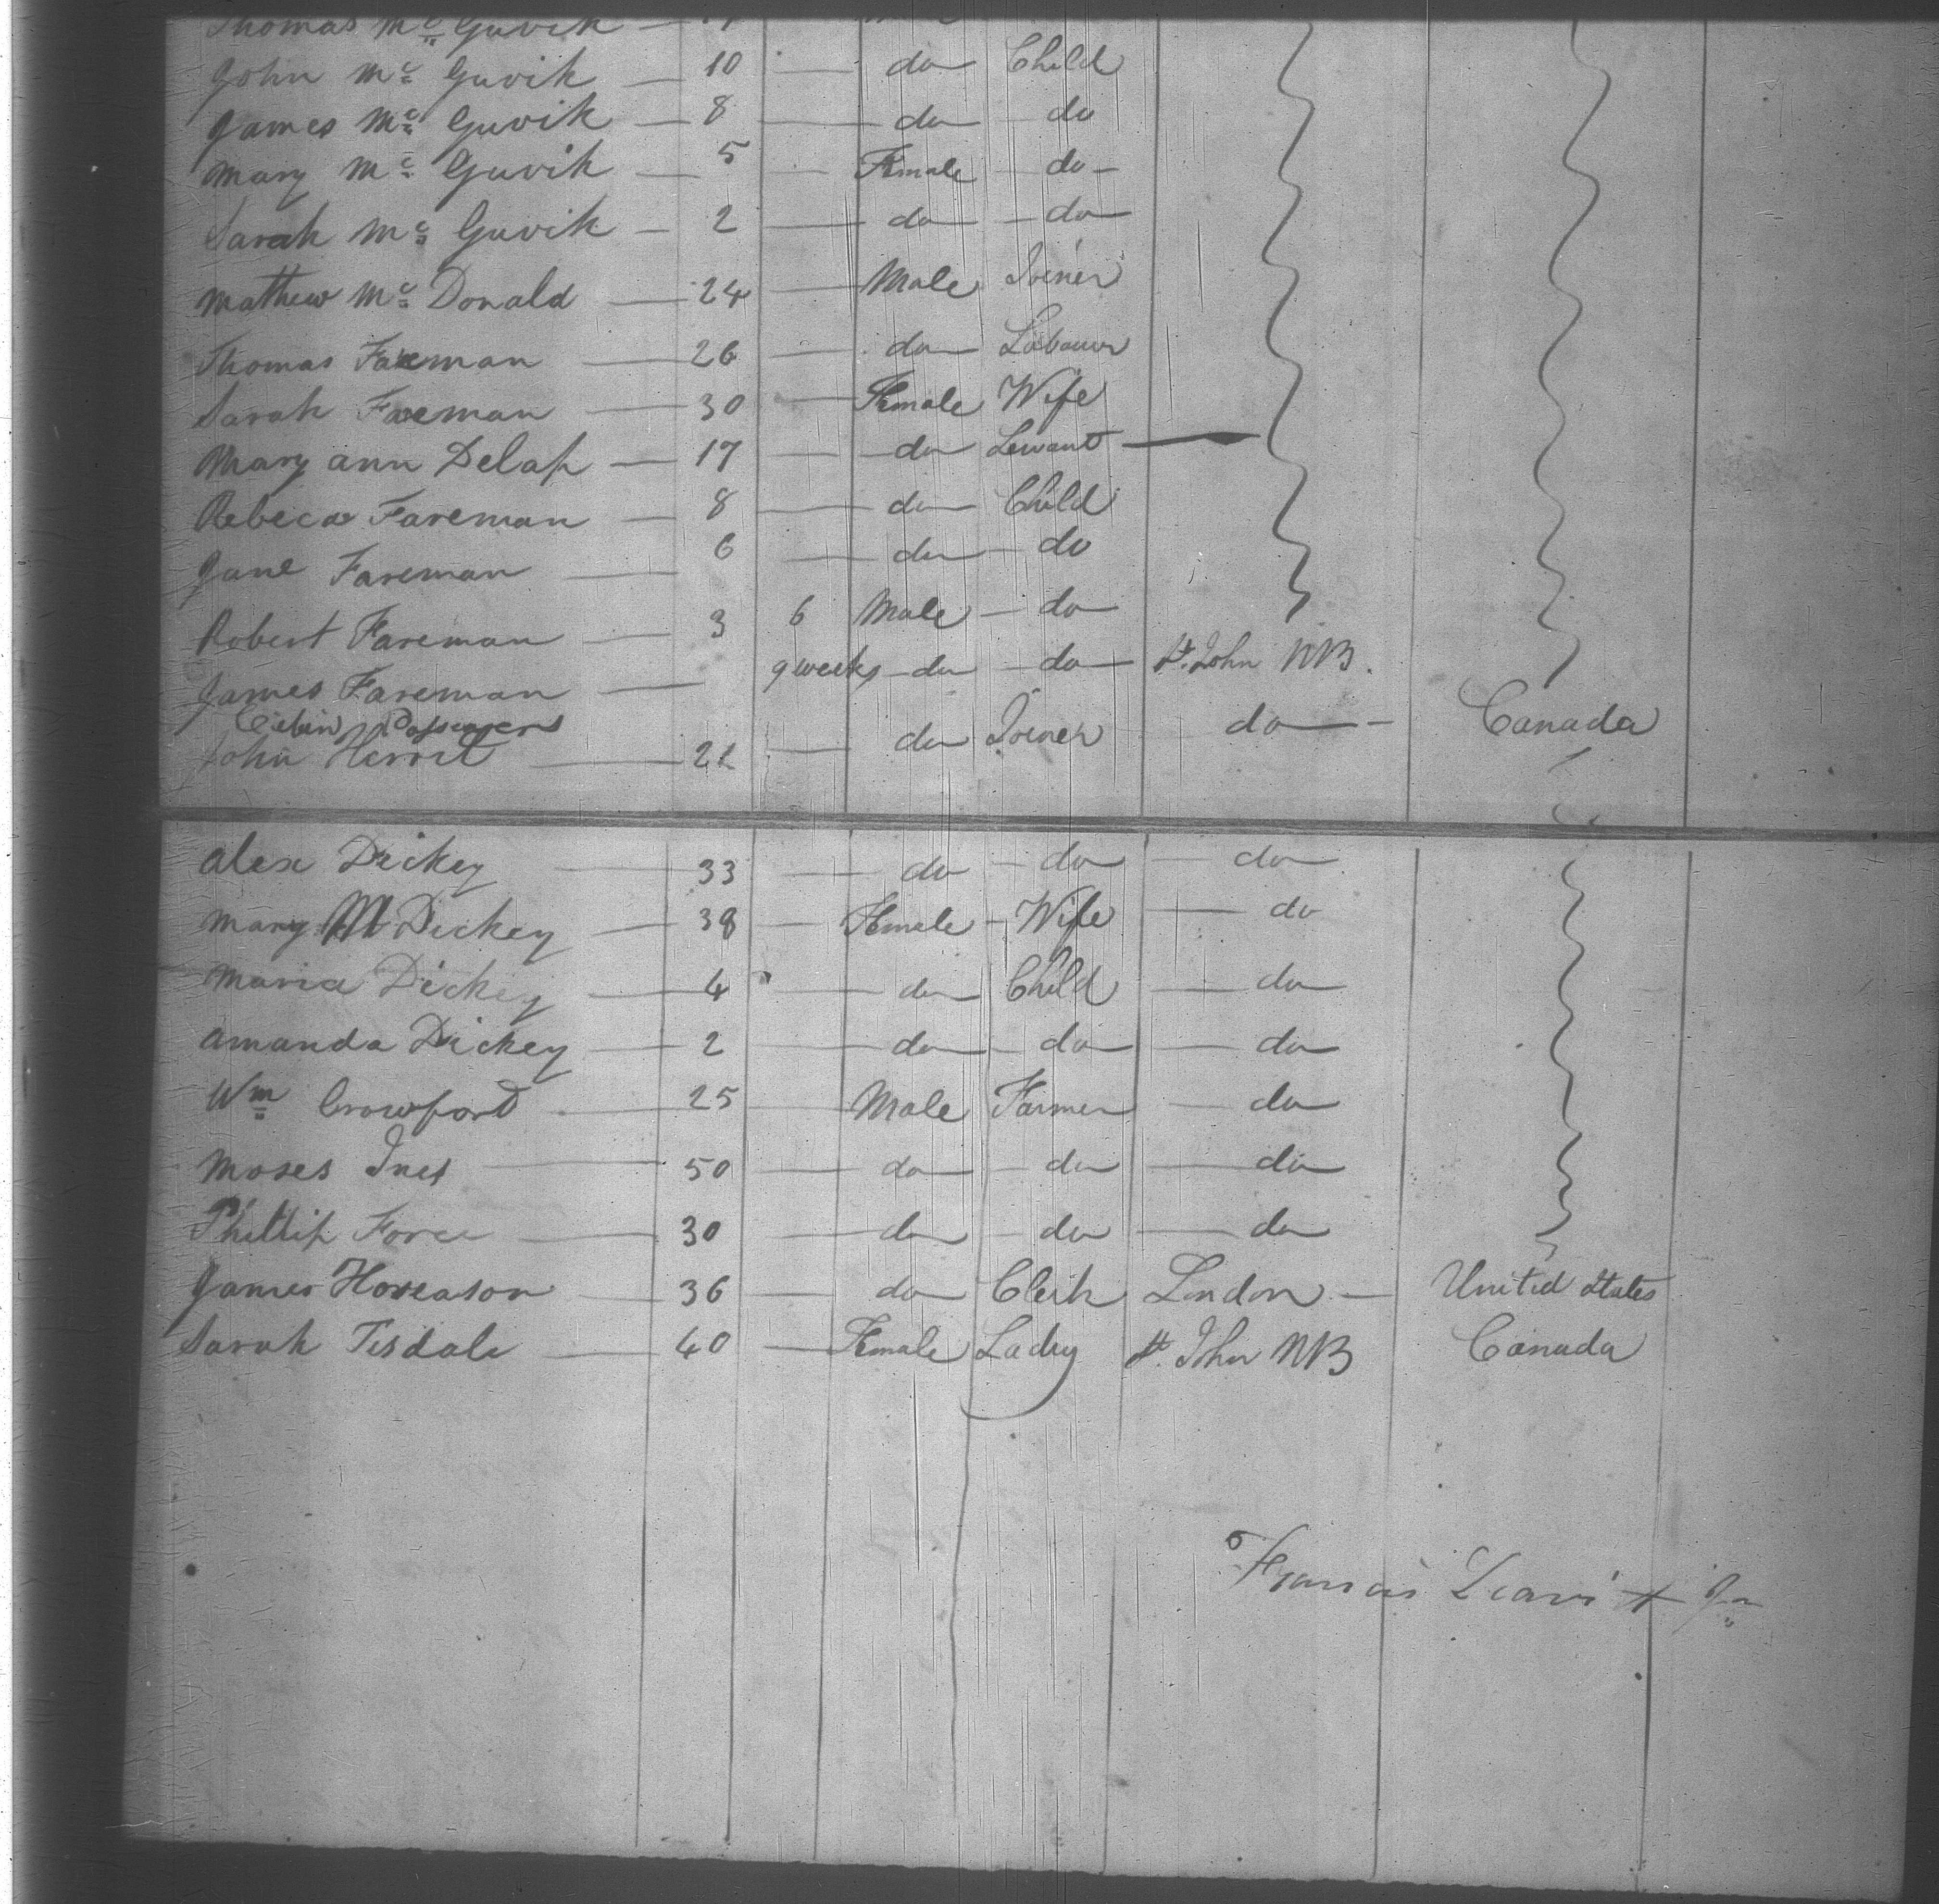 Thomas Mc Guvik
John Mc Guvik — 10 — do Child
James Mc Guvik — 8 — do do
Mary Mc Guvik — 5 — Female — do —
Sarah Mc Guvik — 2 — do — do
Mathew Mc Donald — 24 — Male Joiner
Thomas Fareman — 26 — do Labourer
Sarah Fareman — 30 — Female Wife
Mary ann Delap — 17 — do Servant —
Rebeca Fareman — 8 — do Child
Jane Fareman — 6 — do do
Robert Fareman — 3 6 Male — do
James Fareman — 9 weeks — do — do — St. John NB.
Cabin Passengers
John — 22 — do Joiner do — Canada
Alex Dickey — 33 — do — do — do
Mary M Dickey — 38 — Female — Wife — do
Maria Dickey — 4 — do Child — do
Amanda Dickey — 2 — do — do — do
Wm Crowford — 25 — Male Farmer — do
Moses — 50 — do — do — do
Phillip Force — 30 — do — do — do
James Horeason — 36 — do Clerk London — United States
Sarah Tisdale — 40 — Female Lady St. John NB Canada
Francis Leavitt Jn